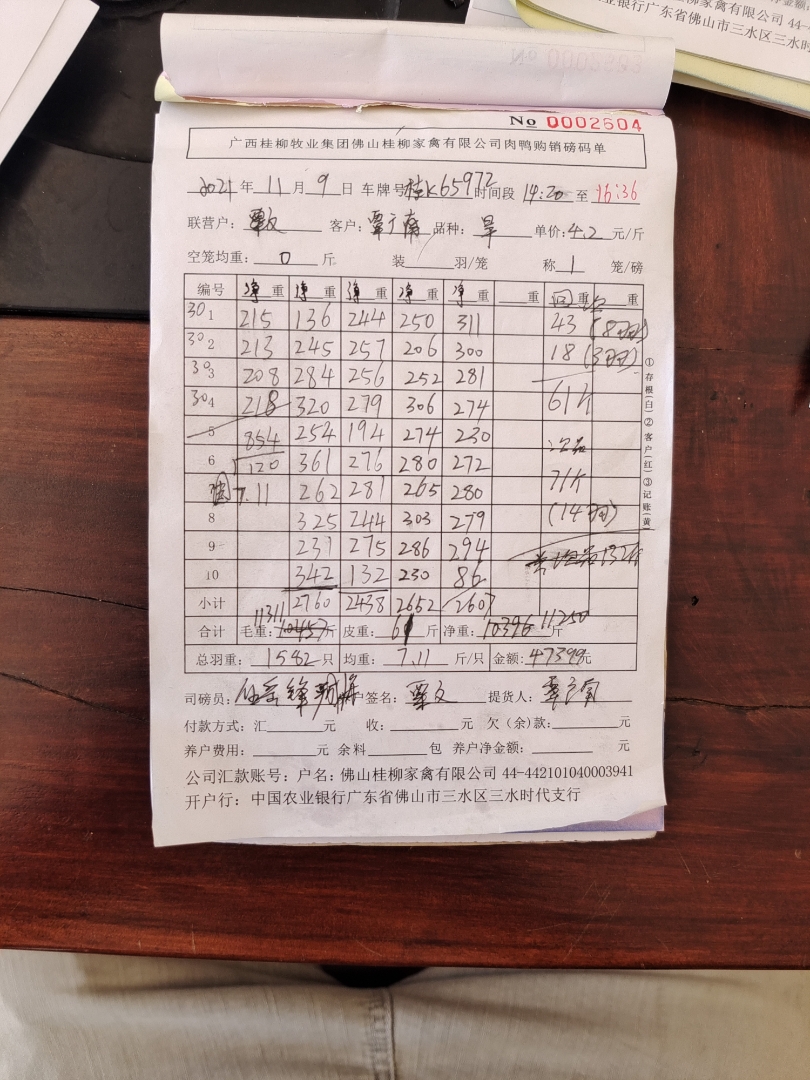 柳家禽有限公司 44-4
业银行广东省佛山市三水区三水时
No 0002604
广西桂柳牧业集团佛山桂柳家禽有限公司肉鸭购销磅码单
2021年 11月 9日 车牌号 桂K65972 时间段 14:20 至 16:36
联营户: 覃文 客户: 品种: 单价: 4.2 元/斤
空笼均重: 0 斤 装 羽/笼 称 1 笼/磅
编号 净重 净重 净重 净重 净重 重 重 重
30 1 215 136 244 250 311 43 (8羽)
30 2 213 245 257 206 300 18 (3羽)
30 3 208 284 256 252 281
30 4 218 320 279 306 274 61斤
5 854 254 194 274 230
6 120 361 276 280 272 71斤
7.11 262 281 265 280 (14羽)
8 325 244 303 279
9 231 275 286 294
10 342 132 230 86
小计 2760 2438 2652 2607
合计 毛重: 11311 10457 斤 皮重: 61 斤 净重: 10396 11250 斤
总羽重: 1582 只 均重: 7.11 斤/只 金额: 47399元
司磅员: 户签名: 覃文 提货人:
付款方式: 汇 元 收: 元 欠(余)款: 元
养户费用: 元 余料 包 养户净金额: 元
公司汇款账号: 户名: 佛山桂柳家禽有限公司 44-442101040003941
开户行: 中国农业银行广东省佛山市三水区三水时代支行
①存根(白)②客户(红)③记账(黄)